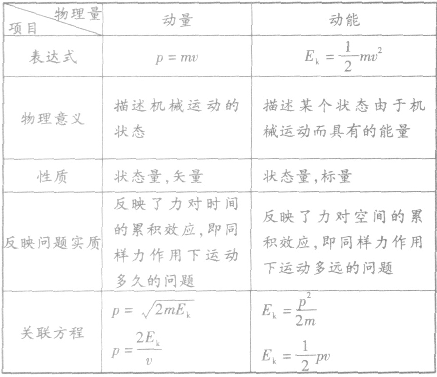 物理量
项目
动量
动能
表达式
p = mv
E_k = \frac{1}{2}mv^2
物理意义
描述机械运动的
状态
描述某个状态由于机
械运动而具有的能量
性质
状态量,矢量
状态量,标量
反映问题实质
反映了力对时间
的累积效应,即同
样力作用下运动
多久的问题
反映了力对空间的累
积效应,即同样力作用
下运动多远的问题
关联方程
p = \sqrt{2mE_k}
p = \frac{2E_k}{v}
E_k = \frac{p^2}{2m}
E_k = \frac{1}{2}pv